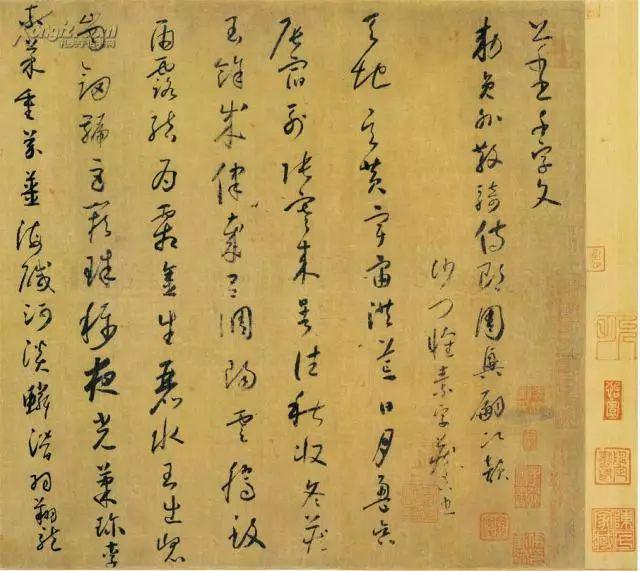 千字文
敕員外散騎侍郎周興嗣次韻
沙門懷素字藏真
天地玄黃宇宙洪荒日月盈昃
辰宿列張寒來暑往秋收冬藏
閏餘成歲律呂調陽雲騰致
雨露結為霜金生麗水玉出崑
崗劍號巨闕珠稱夜光菓珍李
柰菜重芥薑海鹹河淡鱗潛羽翔龍